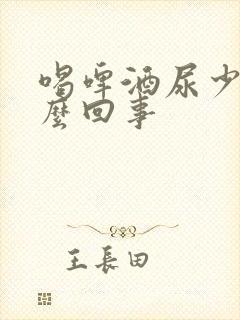 喝啤酒尿少
麼回事
王長田